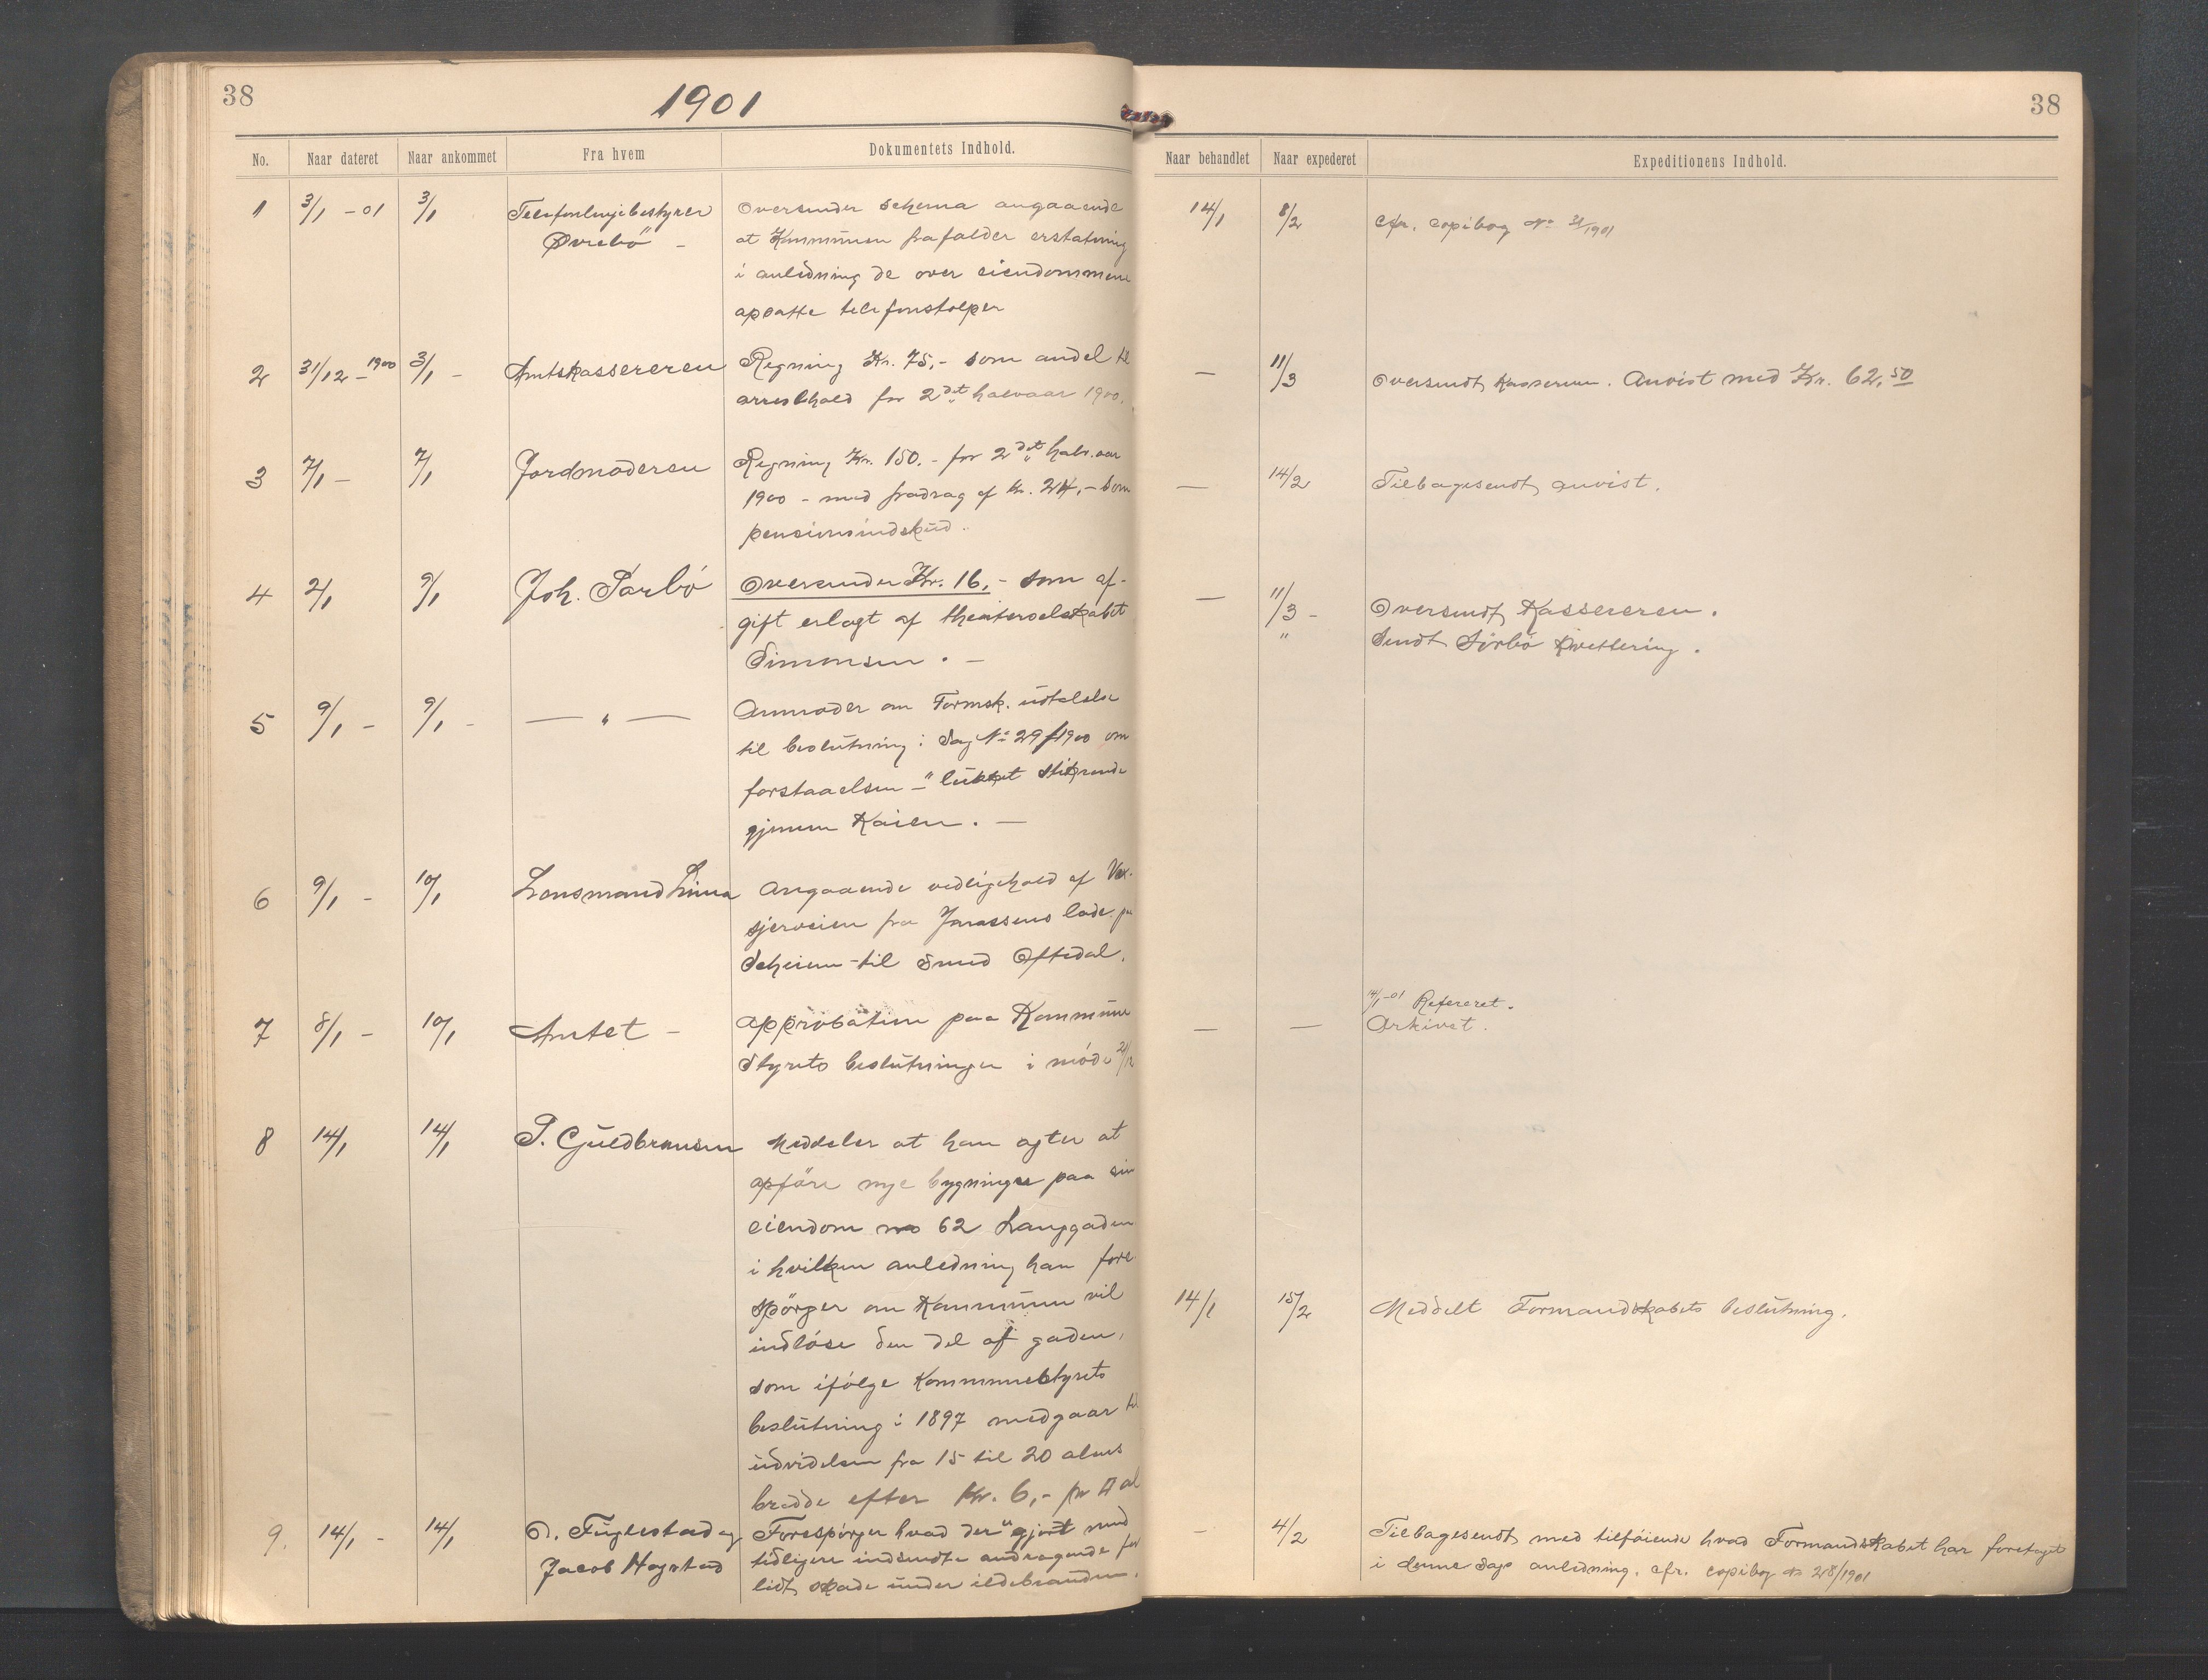 38
1901
No. Naar dateret Naar ankommet Fra hvem Dokumentets Indhold.
1 3/1 -01 3/1 Telefonlinjebestyrer Oversender schema angaaende
Øvrebö - at Kommunen frafalder erstatning
i anledning de over eiendommene
opsatte telefonstolper
2 31/12 - 1900 3/1 - Amtskassereren Regning Kr. 75,- som andel til
arresthold for 2det halvaar 1900.
3 7/1 - 7/1 Jordmoderen Regning Kr. 150.- for 2det halv.aar
1900 - med fradrag af Kr. 24,- som
pensionsindskud.
4 2/1 9/1 Joh. Sørbö Oversender Kr. 16,- som af-
gift erlagt af theaterselskabet
Simonsen. -
5 9/1 - 9/1 - — " — Anmoder om Formsk. udtalelse
til beslutning i Sag No 29/1900 om
forstaaelsen - "lukket stikrende
gjennem Kaien. -
6 9/1 - 10/1 Lensmand Lima Angaaende vedligehold af
sjerveien fra Jonassens lade. paa
Scheien til Smed Oftedal.
7 8/1 - 10/1 Amtet - Approbation paa Kommune
Styrets beslutninger i möde 21/12
8 14/1 14/1 P. Guldbransen Meddeler at han agter at
opföre nye bygninger paa sin
eiendom no 62 Langgaden
i hvilken anledning han fore
spörger om Kommunen vil
indlöse den del af gaden,
som ifölge Kommunestyrets
beslutning i 1897 medgaar til
udvidelsen fra 15 til 20 alens
bredde efter Kr. 6,- pr □ al
9. 14/1 - 14/1 O. Fuglestad og Forespörger hvad der er gjort med
Jacob Hognstad tidligere indsendte andragende for
lidt skade under ildebranden.
38
Naar behandlet Naar expederet Expeditionens Indhold.
14/1 8/2 Cfr. copibog No 31/1901
— 11/3 Oversendt Kassereren. Anvist med Kr. 62,50
— 14/2 Tilbagesendt anvist.
— 11/3 - Oversendt Kassereren.
" Sendt Sörbö Kvittering.
14/1-01 Refereret.
— — Arkivet.
14/1 15/2 Meddelt Formandskabets beslutning.
- 4/2 Tilbagesendt med tilföiende hvad Formandskabet har foretaget
i denne Sags anledning. cfr. copibog No 28/1901